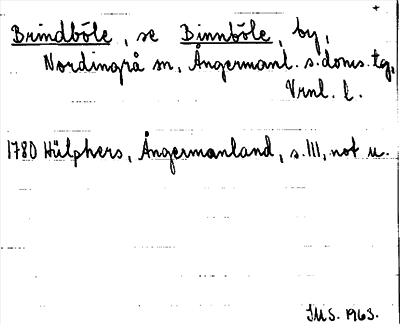 Brindböle, se Binnböle, by,
Nordingrå sn, Ångermanl. s. doms. tg,
Vrnl. l.
1780 Hülphers, Ångermanland, s. 111, not u.
IMS. 1963.